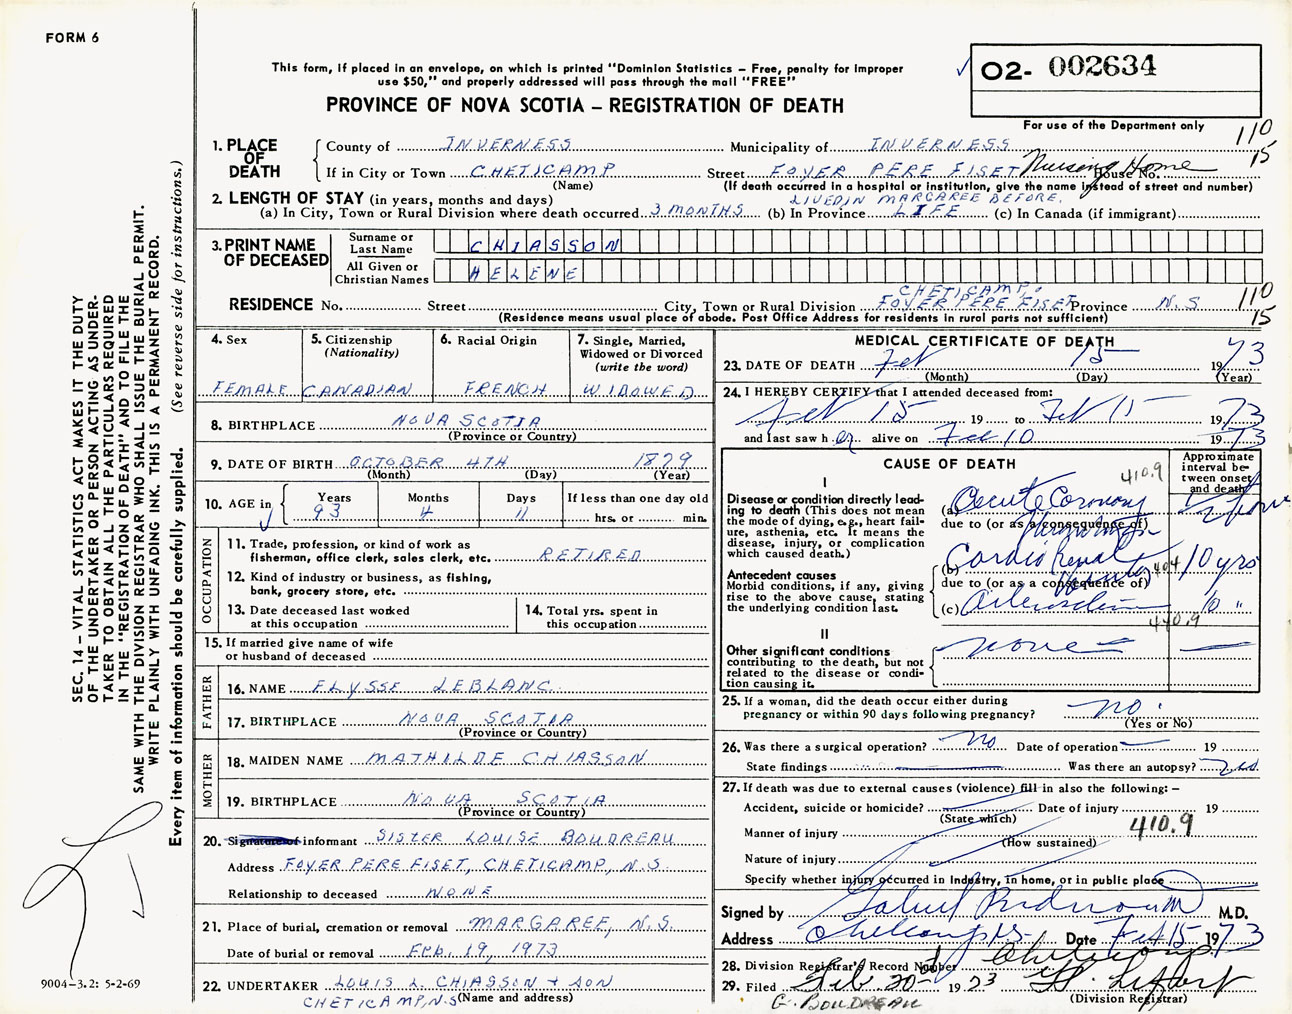 FORM 6
This form, if placed in an envelope, on which is printed "Dominion Statistics – Free, penalty for improper
use $50," and properly addressed will pass through the mail "FREE"
PROVINCE OF NOVA SCOTIA – REGISTRATION OF DEATH
✓ O2- 002634
For use of the Department only
110
15
1. PLACE OF DEATH
County of INVERNESS Municipality of INVERNESS
If in City or Town CHETICAMP Street FOYER PERE FISET Nursing Home House No.
(Name) (If death occurred in a hospital or institution, give the name instead of street and number)
2. LENGTH OF STAY (in years, months and days) LIVED IN MARGAREE BEFORE.
(a) In City, Town or Rural Division where death occurred 3 MONTHS (b) In Province LIFE (c) In Canada (if immigrant)
3. PRINT NAME OF DECEASED
Surname or Last Name CHIASSON
All Given or Christian Names HELENE
CHETICAMP.
RESIDENCE No. Street City, Town or Rural Division FOYER PERE FISET Province N.S 110
(Residence means usual place of abode. Post Office Address for residents in rural parts not sufficient) 15
4. Sex FEMALE
5. Citizenship (Nationality) CANADIAN
6. Racial Origin FRENCH
7. Single, Married, Widowed or Divorced (write the word) WIDOWED
8. BIRTHPLACE NOVA SCOTIA
(Province or Country)
9. DATE OF BIRTH OCTOBER 4TH 1879
(Month) (Day) (Year)
10. AGE in Years 93 Months 4 Days 11 If less than one day old hrs. or min.
OCCUPATION
11. Trade, profession, or kind of work as
fisherman, office clerk, sales clerk, etc. RETIRED
12. Kind of industry or business, as fishing,
bank, grocery store, etc.
13. Date deceased last worked
at this occupation
14. Total yrs. spent in
this occupation
15. If married give name of wife
or husband of deceased
FATHER
16. NAME ELYSSE LEBLANC
17. BIRTHPLACE NOVA SCOTIA
(Province or Country)
MOTHER
18. MAIDEN NAME MATHILDE CHIASSON
19. BIRTHPLACE NOVA SCOTIA
(Province or Country)
20. Signature of informant SISTER LOUISE BOUDREAU
Address FOYER PERE FISET, CHETICAMP, N.S.
Relationship to deceased NONE
21. Place of burial, cremation or removal MARGAREE, N.S.
Date of burial or removal FEB. 19, 1973
22. UNDERTAKER LOUIS L. CHIASSON + SON
CHETICAMP, N.S (Name and address)
MEDICAL CERTIFICATE OF DEATH
23. DATE OF DEATH Feb 15 1973
(Month) (Day) (Year)
24. I HEREBY CERTIFY that I attended deceased from:
Feb 15 19 to Feb 15 1973
and last saw her alive on Feb 10 1973
CAUSE OF DEATH
Approximate interval between onset and death
I
410.9
Disease or condition directly leading to death (This does not mean the mode of dying, e.g., heart failure, asthenia, etc. It means the disease, injury, or complication which caused death.)
(a) Acute Coronary
due to (or as a consequence of)
Antecedent causes
Morbid conditions, if any, giving rise to the above cause, stating the underlying condition last.
(b) Cardio Renal 404 10 yrs
due to (or as a consequence of)
(c) 10 "
440.9
II
Other significant conditions
contributing to the death, but not related to the disease or condition causing it.
none
25. If a woman, did the death occur either during
pregnancy or within 90 days following pregnancy? no.
(Yes or No)
26. Was there a surgical operation? No Date of operation 19
State findings Was there an autopsy? no
27. If death was due to external causes (violence) fill in also the following: –
Accident, suicide or homicide? Date of injury 19
(State which)
410.9
Manner of injury
(How sustained)
Nature of injury
Specify whether injury occurred in Industry, in home, or in public place
Signed by M.D.
Address Cheticamp NS Date Feb 15 1973
28. Division Registrar's Record Number Cheticamp
29. Filed Feb. 20 1973
(Division Registrar)
G. BOUDREAU
SEC. 14 – VITAL STATISTICS ACT MAKES IT THE DUTY
OF THE UNDERTAKER OR PERSON ACTING AS UNDER-
TAKER TO OBTAIN ALL THE PARTICULARS REQUIRED
IN THE "REGISTRATION OF DEATH" AND TO FILE THE
SAME WITH THE DIVISION REGISTRAR WHO SHALL ISSUE THE BURIAL PERMIT.
WRITE PLAINLY WITH UNFADING INK. THIS IS A PERMANENT RECORD.
Every item of information should be carefully supplied. (See reverse side for instructions,)
9004-3.2: 5-2-69